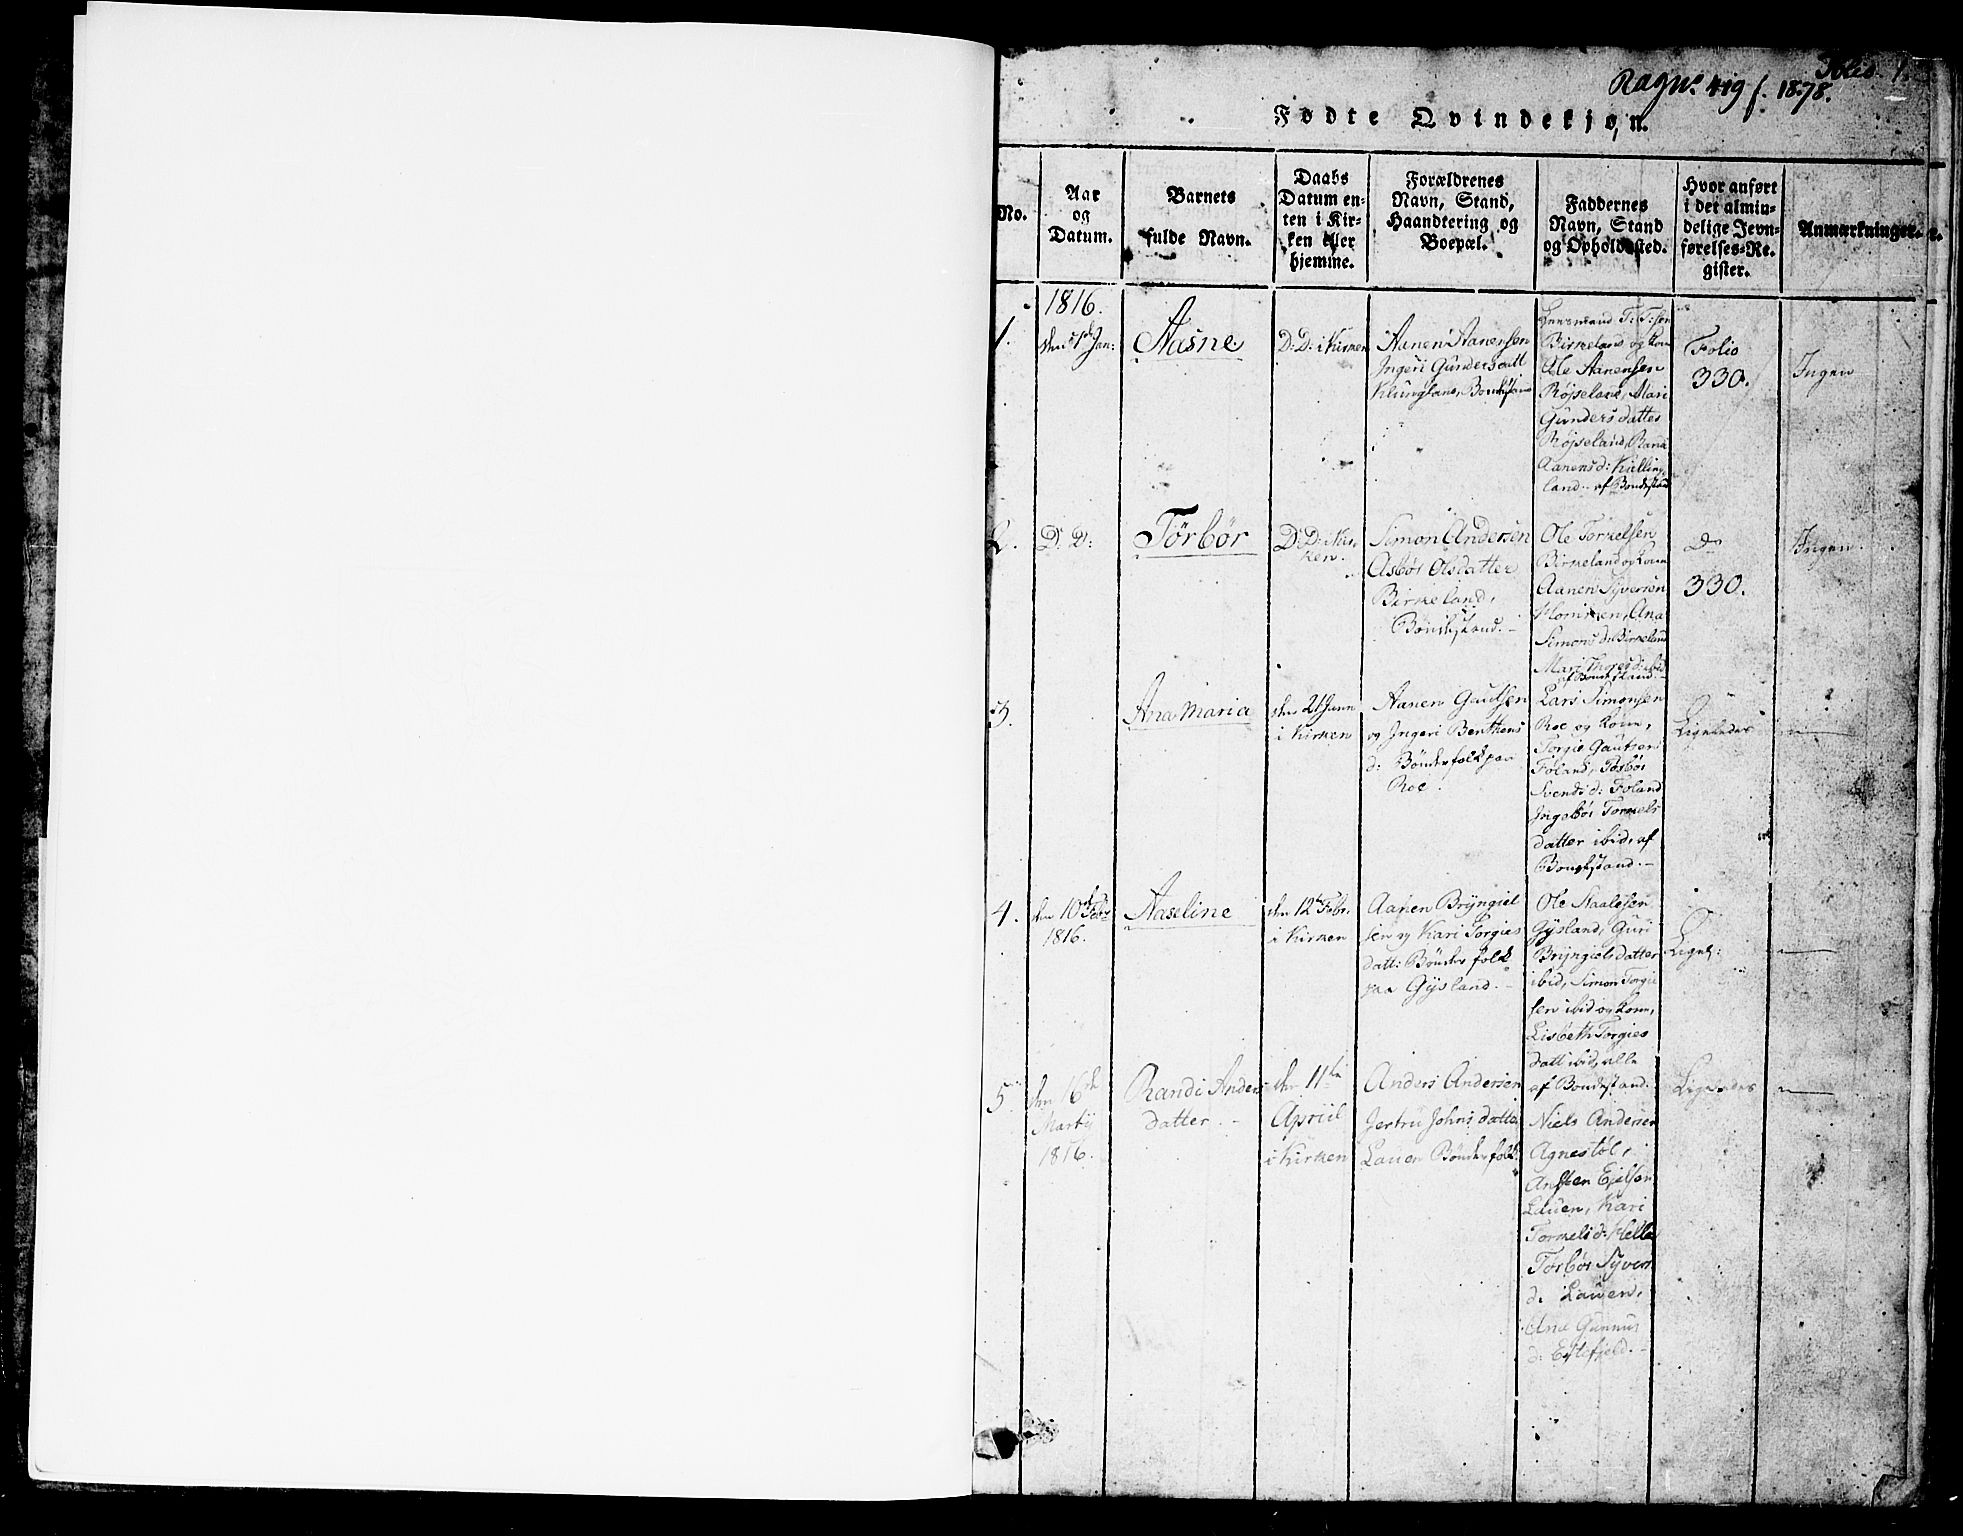 Folio 1.
Ragn. 419 f. 1878.
Fødte Qvindekjøn.
No.
Aar
og
Datum.
Barnets
fulde Navn.
Daabs
Datum en-
ten i Kir-
ken eller
hjemme.
Forældrenes
Navn, Stand,
Haandtering og
Boepæl.
Faddernes
Navn, Stand
og Opholdssted.
Hvor anført
i det almin-
delige Jevn-
førelses-Re-
gister.
Anmærkninger.
1.
1816.
den 1ste Jan:
Aasne
D: D: i Kirken
Aanen Aanensen
Ingeri Gundersdatt
Klungland, Bondestand
Lensmand T: T:søn
Birkeland og Kone
Ole Aanensen
Røjseland, Mari
Gundersdatter
Røjseland,
Aanensd:
land. af Bondestand
Folio
330.
Ingen
2.
D: D:
Tørbør
D: D: i Kir-
ken.
Simon Andersen
Asbør Olsdatter
Birkeland,
Bondestand.
Ole Torkelsen
Birkeland og Kone
Aanen Syversen
Ana
Simonsd: Birkeland
Mari ibid
af Bondestand.
Do
330.
Ingen.
3.
Ana Maria
den 21 Janu
i Kirken
Aanen Gautsen
og Ingeri Benthens
d: Bønderfolk paa
Roe.
Lars Simonsen
Roe og Kone,
Torgie Gautsen
Foland, Torbør
Svendsd: Foland
Ingebør Torkels
datter ibid, af
Bondestand.
Ligeledes
4.
den 10de Febr
1816.
Aaseline
den 12te Febr.
i Kirken
Aanen Bryngiel
sen og Kari Torgies
datt: Bønder folk
paa Gysland.
Ole Staalesen
Gysland, Guri
Bryngielsdatter
ibid, Simon Torgie
sen ibid og Kone,
Lisbeth Torgies
datt ibid, alle
af Bondestand.
Ligel:
5
den 16de
Marty
1816.
Randi Anders
datter.
den 11te
Apriil
i Kirken
Anders Andersen
Jertru Johnsdatter
Lauen Bønderfolk.
Niels Andersen
Agnestøl,
Ansten Ejelsen
Lauen, Kari
Torkelsd: Helle
Tørbør Syvers
d: Lauen,
Ane Gunnus
d: Eftefjeld.
Ligeledes